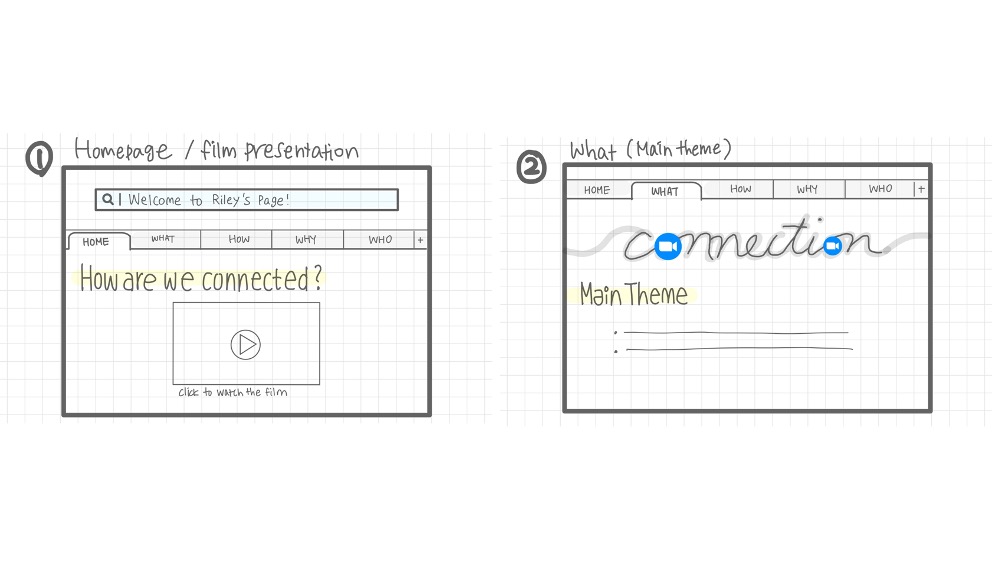 ① Homepage / film presentation
Welcome to Riley's Page!
HOME WHAT HOW WHY WHO +
How are we connected?
click to watch the film
② What (Main theme)
HOME WHAT HOW WHY WHO +
connection
Main Theme